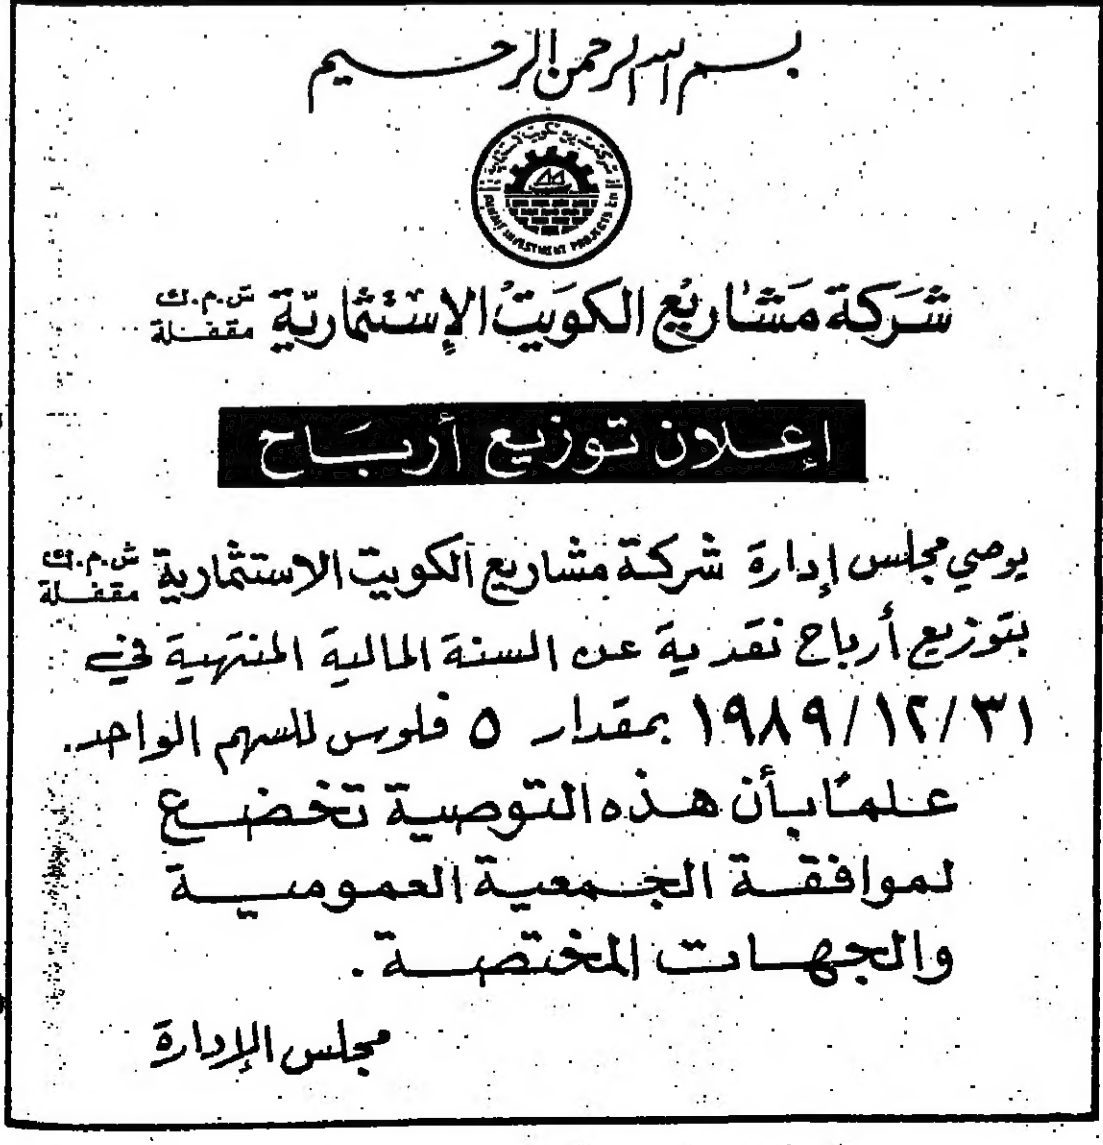 بسم الله الرحمن الرحيم
KUWAIT INVESTMENT PROJECTS Co
شَركة مَشاريع الكويت الإستثماريّة ش.م.ك مقفلة
إعلان توزيع أرباح
يوصي مجلس إدارة شركة مشاريع الكويت الاستثمارية ش.م.ك مقفلة
بتوزيع أرباح نقدية عن السنة المالية المنتهية في
٣١/١٢/١٩٨٩ بمقدار ٥ فلوس للسهم الواحد.
علمًا بأن هذه التوصية تخضع
لموافقة الجمعية العمومية
والجهات المختصة.
مجلس الإدارة